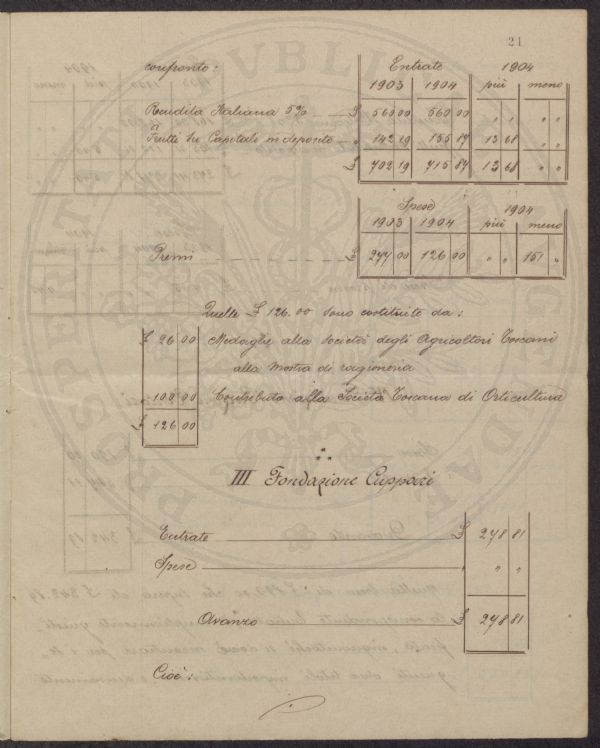 21
confronto: Entrate 1904
1903 1904 più meno
Rendita Italiana 5% £ 560 00 560 00 " " " "
Frutti su Capitale in deposito " 142 19 155 87 13 68 " "
£ 702 19 715 87 13 68 " "
Spese 1904
1903 1904 più meno
Premi £ 277 00 126 00 " " 151 "
Quelle £ 126.00 sono costituite da:
£ 26 00 Medaglie alla Società degli Agricoltori Toscani
alla mostra di ragioneria
" 100 00 Contributo alla Società Toscana di Orticultura
£ 126 00
III Fondazione Cuppari
Entrate £ 278 81
Spese " " "
Avanzo £ 278 81
Cioè:
PROSPERITATI PVBLICAE AVGENDAE